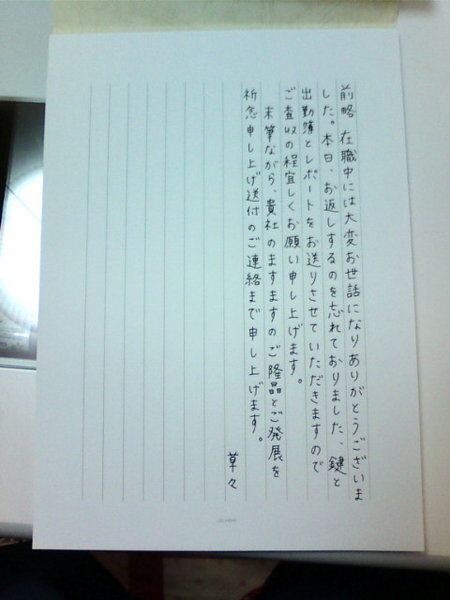 前略 在職中には大変お世話になりありがとうございま
した。本日、お返しするのを忘れておりました、鍵と
出勤簿とレポートをお送りさせていただきますので
ご査収の程宜しくお願い申し上げます。
末筆ながら、貴社のますますのご隆品とご発展を
祈念申し上げ送付のご連絡まで申し上げます。
草々